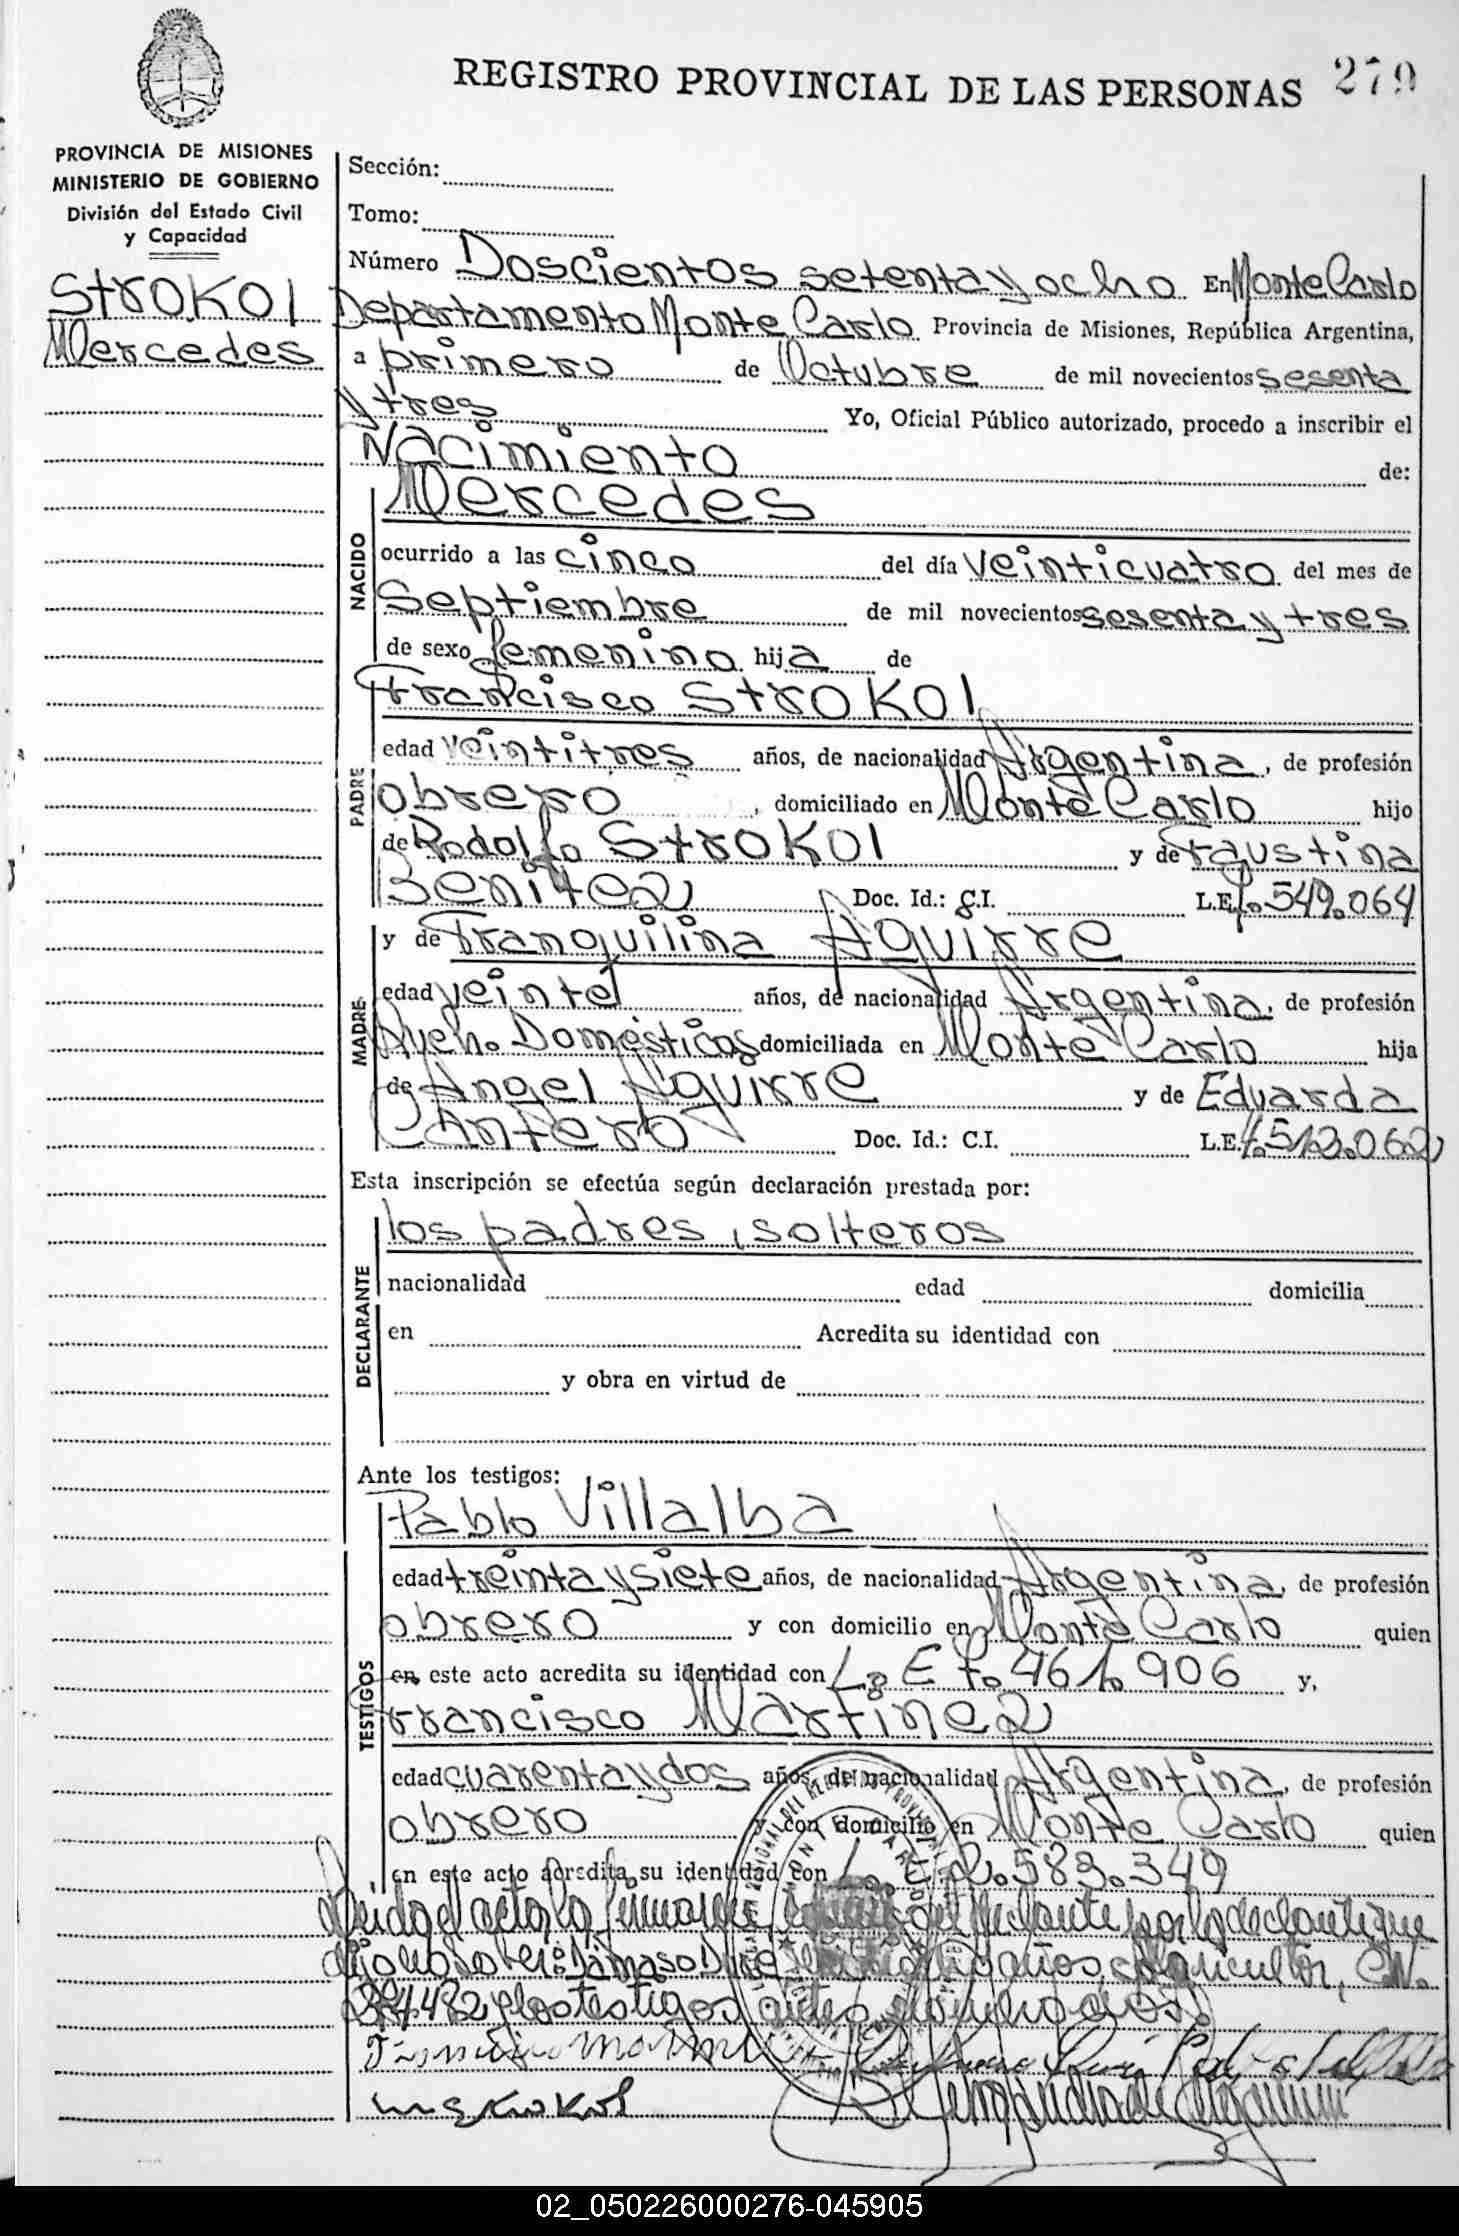 REGISTRO PROVINCIAL DE LAS PERSONAS 279
PROVINCIA DE MISIONES
MINISTERIO DE GOBIERNO
División del Estado Civil
y Capacidad
Strokol
Mercedes
Sección:
Tomo:
Número Doscientos setenta y ocho En Monte Carlo
Departamento Monte Carlo Provincia de Misiones, República Argentina,
a primero de Octubre de mil novecientos sesenta
y tres Yo, Oficial Público autorizado, procedo a inscribir el
Nacimiento de:
NACIDO
Mercedes
ocurrido a las cinco del día veinticuatro del mes de
Septiembre de mil novecientos sesenta y tres
de sexo femenino hija de
PADRE
Francisco Strokol
edad veintitres años, de nacionalidad Argentina, de profesión
obrero, domiciliado en Monte Carlo hijo
de Rodolfo Strokol y de Faustina
Benitez Doc. Id.: C.I. L.E. 7.549.064
MADRE
y de Tranquilina Aguirre
edad veinte años, de nacionalidad Argentina, de profesión
Queh. Domésticos domiciliada en Monte Carlo hija
de Angel Aguirre y de Eduarda
Cantero Doc. Id.: C.I. L.E. 4.513.062
Esta inscripción se efectúa según declaración prestada por:
DECLARANTE
los padres, solteros
nacionalidad edad domicilia
en Acredita su identidad con
y obra en virtud de
Ante los testigos:
TESTIGOS
Pablo Villalba
edad treinta y siete años, de nacionalidad Argentina, de profesión
obrero y con domicilio en Monte Carlo quien
en este acto acredita su identidad con L. E 7.461.906 y,
Francisco Martinez
edad cuarenta y dos años, de nacionalidad Argentina, de profesión
obrero y con domicilio en Monte Carlo quien
en este acto acredita su identidad con L. E 2.583.349
Leida el acta la firmaron el declarante por la declarante que
dijo no saber: Damaso años, agricultor,
los testigos ante
02_050226000276-045905